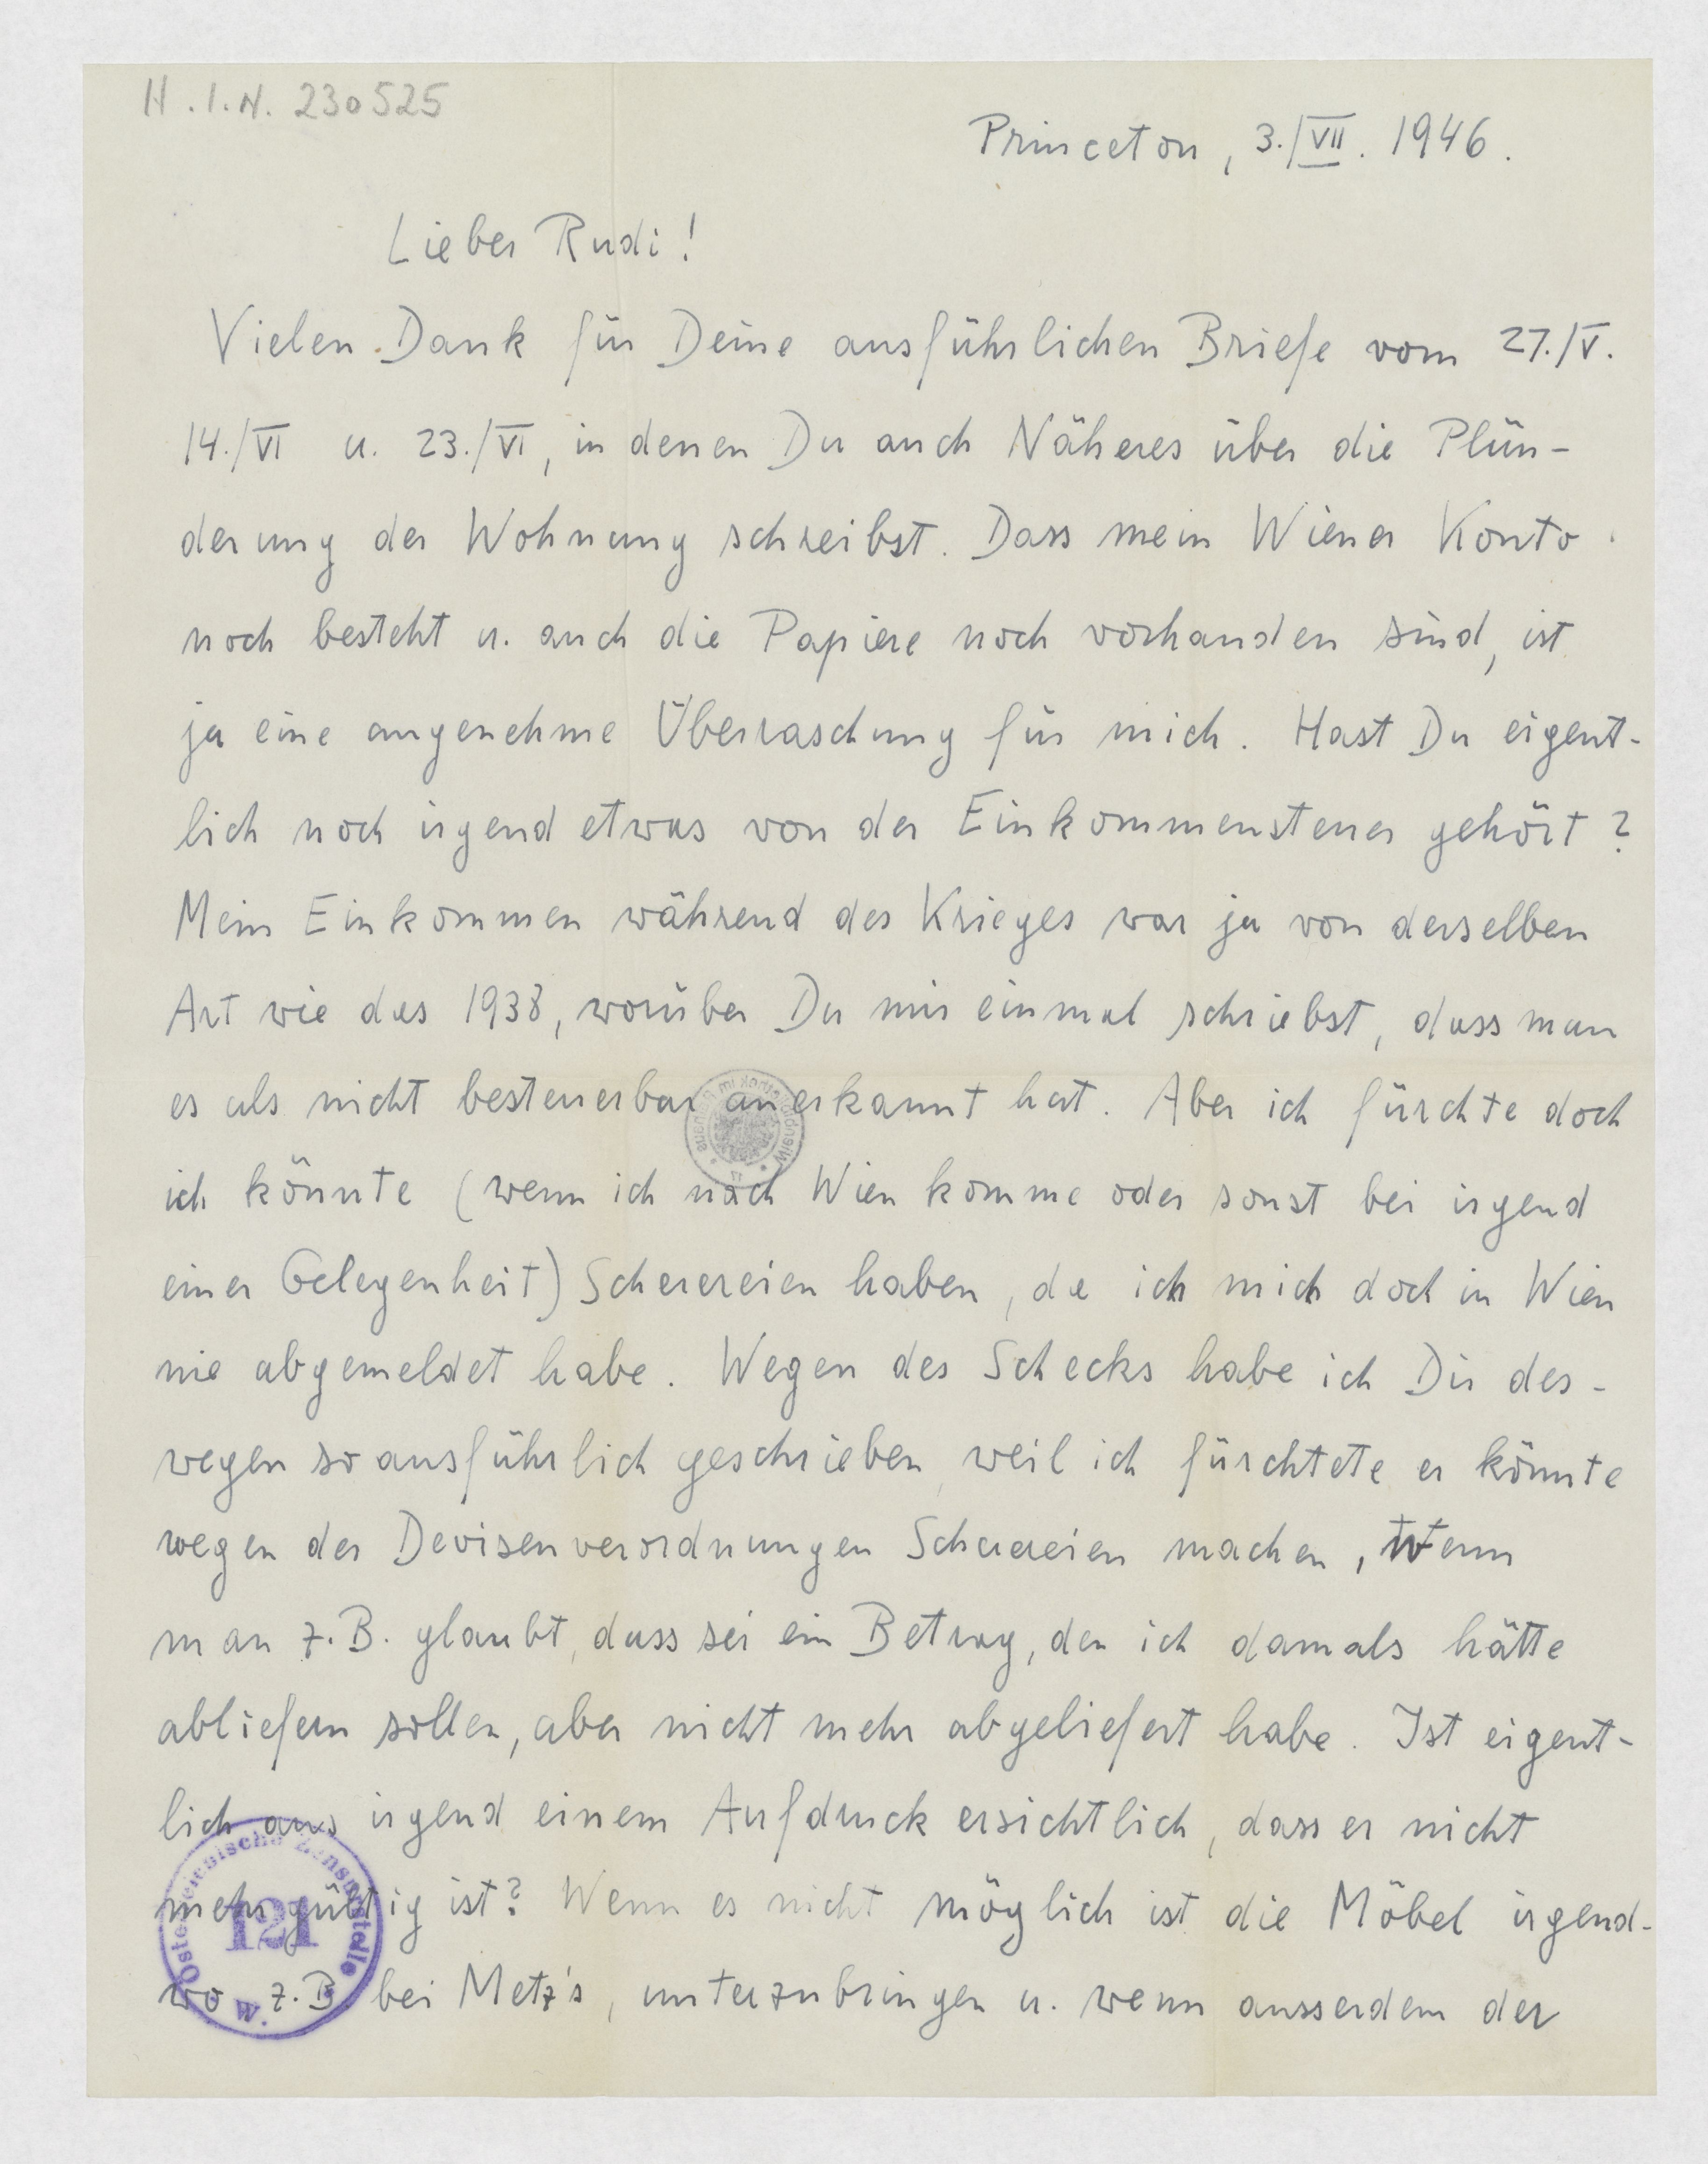 H.I.N. 230525
Princeton, 3./VII. 1946.
Lieber Rudi!
Vielen Dank für Deine ausführlichen Briefe vom 27./V.
14./VI u. 23./VI, in denen Du auch Näheres über die Plün-
derung der Wohnung schreibst. Dass mein Wiener Konto
noch besteht u. auch die Papiere noch vorhanden sind, ist
ja eine angenehme Überraschung für mich. Hast Du eigent-
lich noch irgend etwas von der Einkommensteuer gehört?
Mein Einkommen während des Krieges war ja von derselben
Art wie das 1938, worüber Du mir einmal schriebst, dass man
es als nicht besteuerbar anerkannt hat. Aber ich fürchte doch
ich könnte (wenn ich nach Wien komme oder sonst bei irgend
einer Gelegenheit) Scherereien haben, da ich mich doch in Wien
nie abgemeldet habe. Wegen des Schecks habe ich Dir des-
wegen so ausführlich geschrieben, weil ich fürchtete er könnte
wegen der Devisenverordnungen Scherereien machen, wenn
man z.B. glaubt, dass sei ein Betrag, den ich damals hätte
abliefern sollen, aber nicht mehr abgeliefert habe. Ist eigent-
lich aus irgend einem Aufdruck ersichtlich, dass er nicht
mehr gültig ist? Wenn es nicht möglich ist die Möbel irgend-
wo z.B. bei Metz's, unterzubringen u. wenn ausserdem der
Österreichische Zensurstelle
121
W.